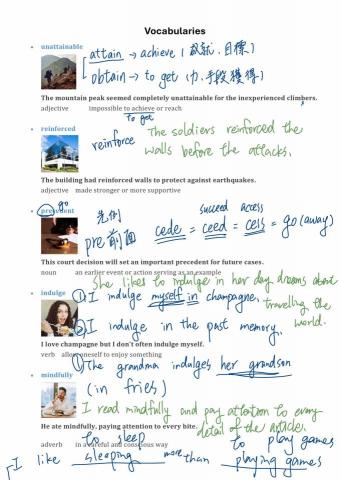 Vocabularies
unattainable
attain → achieve (成就.目標)
obtain → to get (巾.手段獲得)
The mountain peak seemed completely unattainable for the inexperienced climbers.
adjective impossible to achieve or reach
to get
reinforced
reinforce
The soldiers reinforced the
walls before the attacks.
The building had reinforced walls to protect against earthquakes.
adjective made stronger or more supportive
go
precedent
先例
succeed access
pre前面
cede = ceed = cess = go (away)
This court decision will set an important precedent for future cases.
noun an earlier event or action serving as an example
She likes to indulge in her day dreams about
travelling the
world.
indulge
① I indulge myself in champagne.
② I indulge in the past memory.
I love champagne but I don't often indulge myself.
verb allow oneself to enjoy something
① The grandma indulges her grandson
(in fries)
mindfully
I read mindfully and pay attention to every
detail of the article.
He ate mindfully, paying attention to every bite.
adverb in a careful and conscious way
to sleep to play games
I like sleeping more than playing games